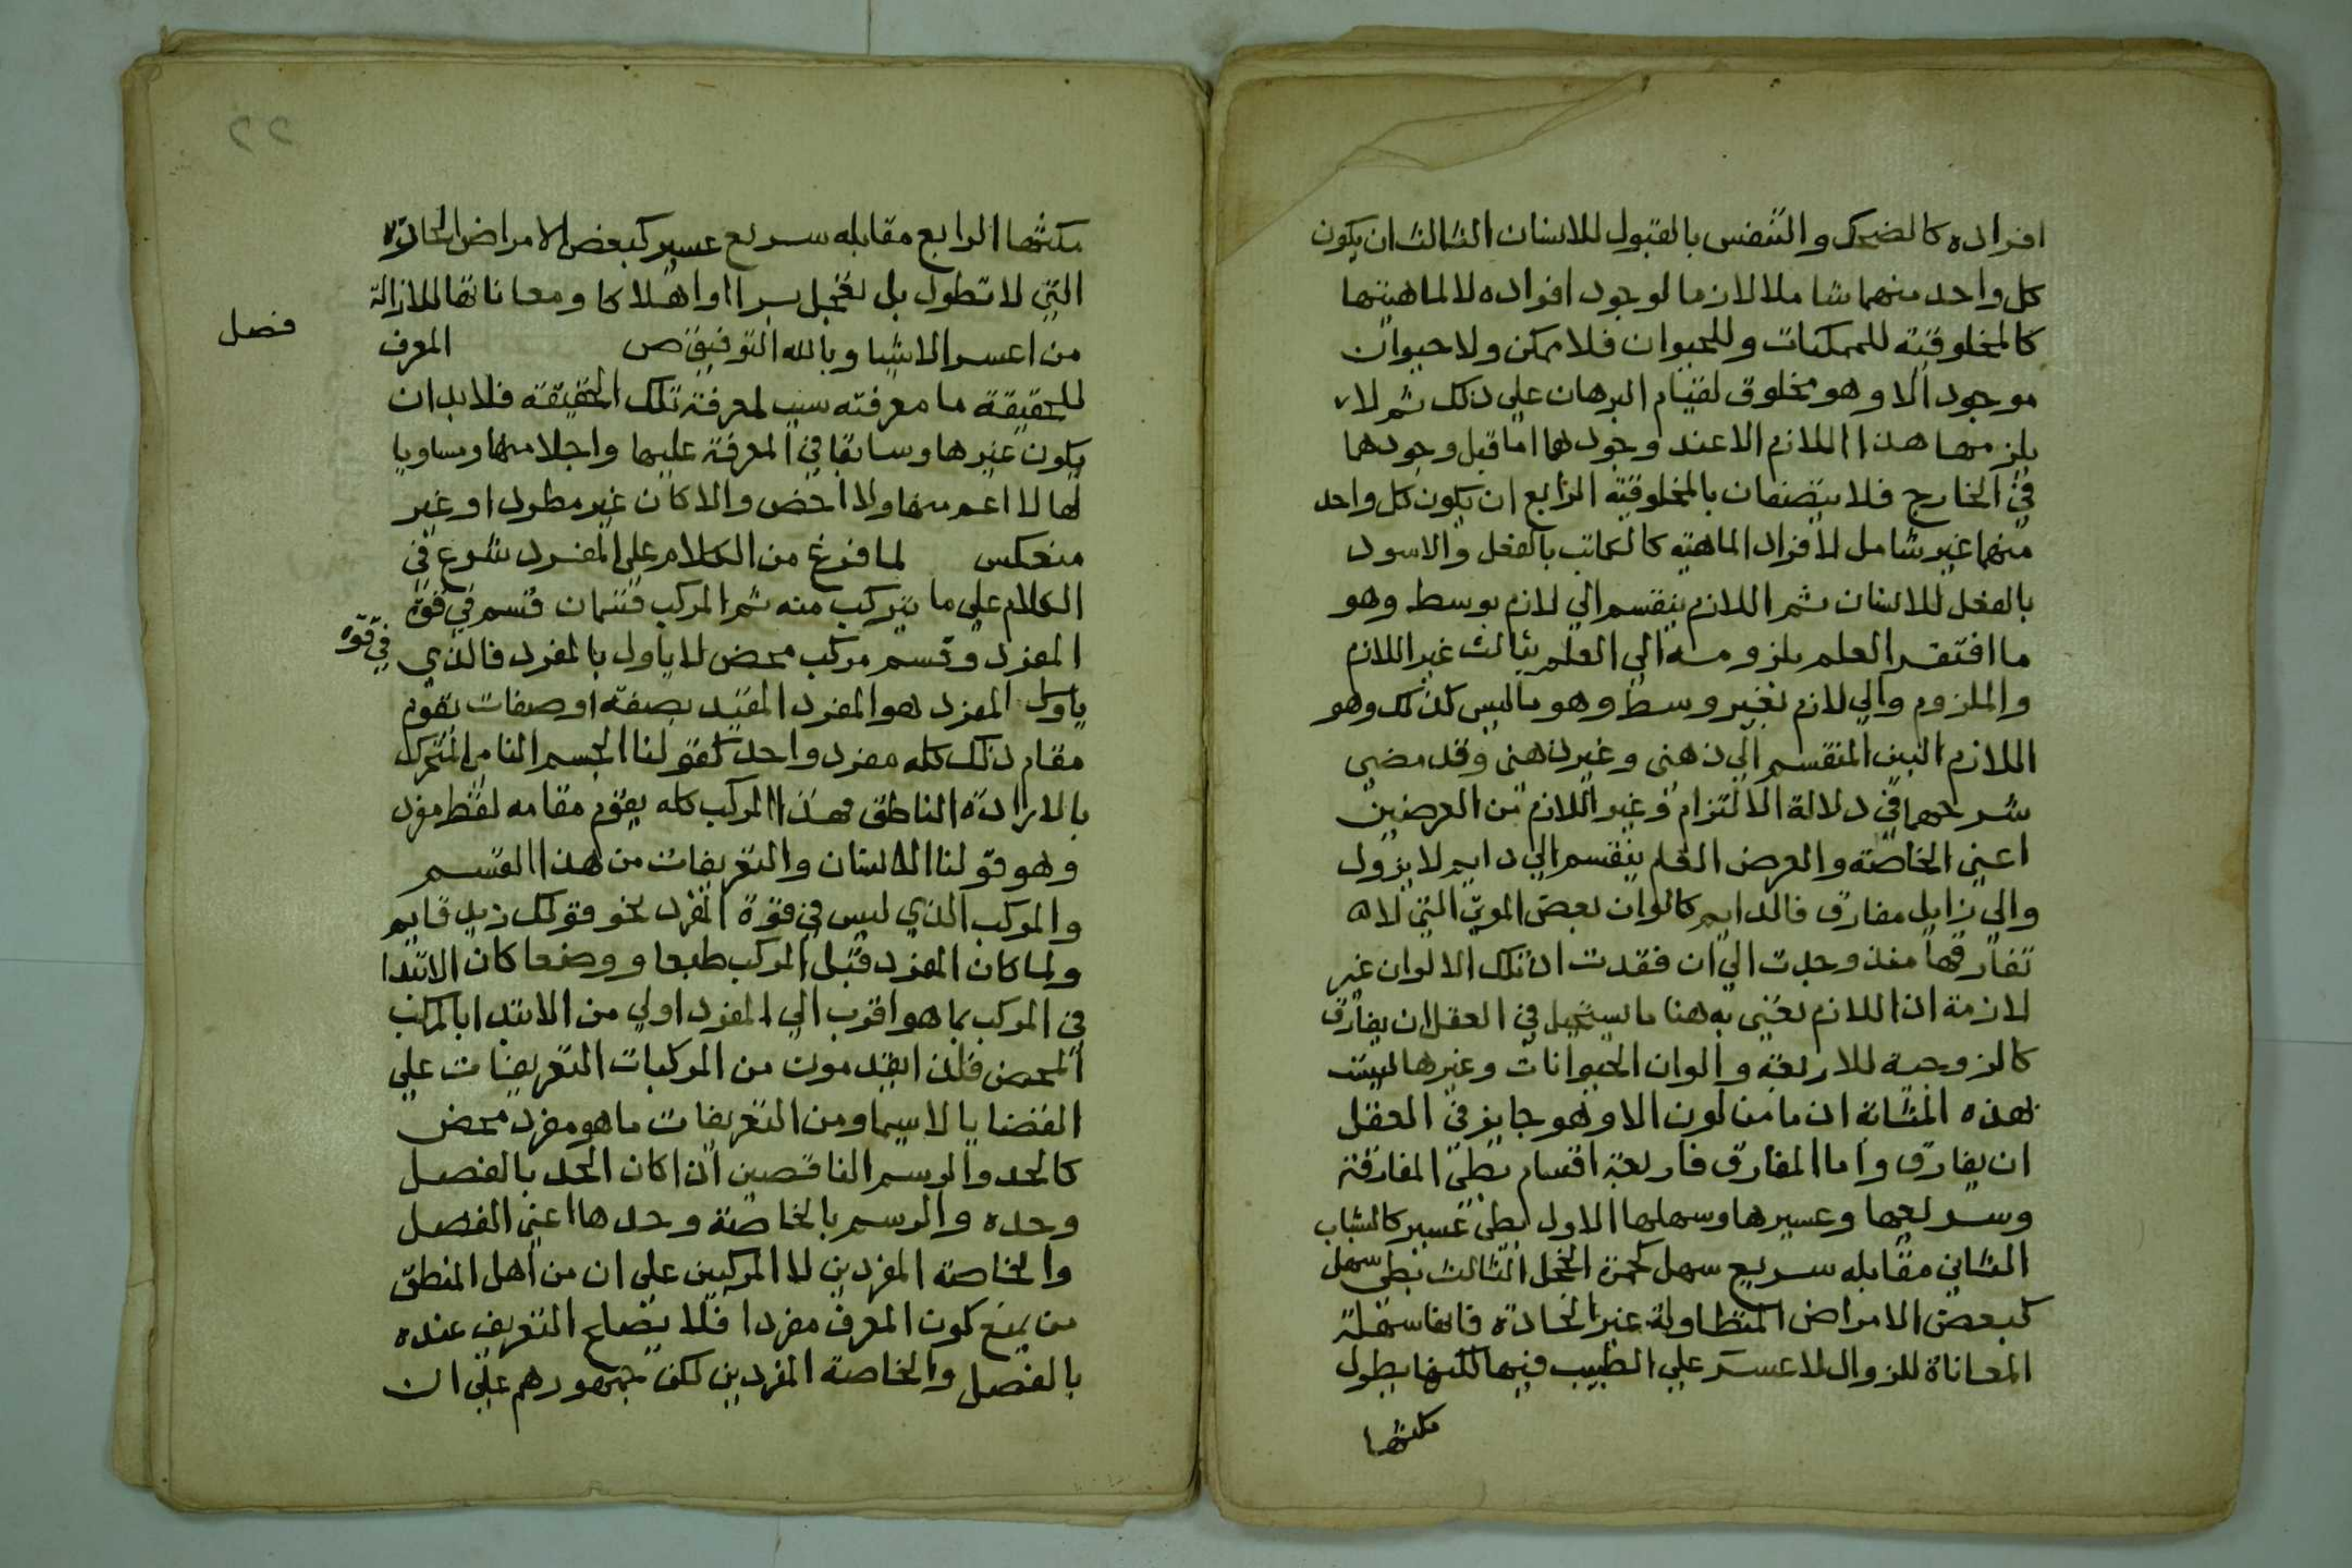 افراده كالضحك والتنفس بالقبول للانسان الثالث ان يكون
كل واحد منهما شاملا لازما لوجود افراده لا لماهيتها
كالمخلوقية للممكنات وللحيوان فلا ممكن ولا حيوان
موجود الا وهو مخلوق لقيام البرهان علي ذلك ثم لا
يلزمهما هذا اللازم الا عند وجودهما اما قبل وجودهما
في الخارج فلا يتصفان بالمخلوقية الرابع ان يكون كل واحد
منهما غير شامل لافراد الماهية كالكاتب بالفعل والاسود
بالفعل للانسان ثم اللازم ينقسم الي لازم بوسط وهو
ما افتقر العلم بلزومه الي العلم بثالث غير اللازم
والملزوم والي لازم بغير وسط وهو ما ليس كذلك وهو
اللازم البين المنقسم الي ذهني وغير ذهني وقد مضي
شرحهما في دلالة الالتزام وغير اللازم من العرضين
اعني الخاصة والعرض العام ينقسم الي دايم لا يزول
والي زايل مفارق فالدايم كالوان بعض التي لا
تفارقها منذ وجدت الي ان فقدت اذ تلك الالوان غير
لازمة اذ اللازم نعني به هنا ما يستحيل في العقل ان يفارق
كالزوجية للاربعة والوان الحيوانات وغيرها ليست
بهذه المثابة اذ ما من لون الا وهو جايز في العقل
ان يفارق واما المفارق فاربعة اقسام بطي المفارقة
وسريعها وعسيرها وسهلها الاول بطي عسير كالشباب
الثاني مقابله سريع سهل كحمرة الخجل الثالث بطي سهل
كبعض الامراض المتطاولة غير الحادة فانها سهلة
المعاناة للزوال لا عسر علي الطبيب فيها لكنها يطول
مكثها
٢٢
مكثها الرابع مقابله سريع عسير كبعض الامراض الحادة
التي لا تطول بل تعجل برا او اهلاكا ومعاناتها للازالة
من اعسر الاشيا وبالله التوفيق ص المعرف
فصل
للحقيقة ما معرفته سبب لمعرفة تلك الحقيقة فلا بد ان
يكون غيرها وسابقا في المعرفة عليها واجلا منها ومساويا
لها لا اعم منها ولا اخص والا كان غير مطرد او غير
منعكس لما فرغ من الكلام علي المفرد شرع في
الكلام علي ما يتركب منه ثم المركب قسمان قسم في قوة
المفرد وقسم مركب محض لا ياول بالمفرد فالذي في قوة
ياول المفرد هو المفرد المقيد بصفة او صفات يقوم
مقام ذلك كله مفرد واحد كقولنا الجسم النامي المتحرك
بالارادة الناطق فهذا المركب كله يقوم مقامه لفظ مفرد
وهو قولنا الانسان والتعريفات من هذا القسم
والمركب الذي ليس في قوة المفرد نحو قولك زيد قايم
ولما كان المفرد قبل المركب طبعا ووضعا كان الابتدا
في المركب بما هو اقرب الي المفرد اولي من الابتدا بالمركب
المحض فلذا يقدمون من المركبات التعريفات علي
القضايا لاسيما ومن التعريفات ما هو مفرد محض
كالحد والرسم الناقصين اذا كان الحد بالفصل
وحده والرسم بالخاصة وحدها اعني الفصل
والخاصة المفردين لا المركبين علي ان من اهل المنطق
من يمنع كون المعرف مفردا فلا يصلح التعريف عنده
بالفصل والخاصة المفردين لكن جمهورهم علي ان